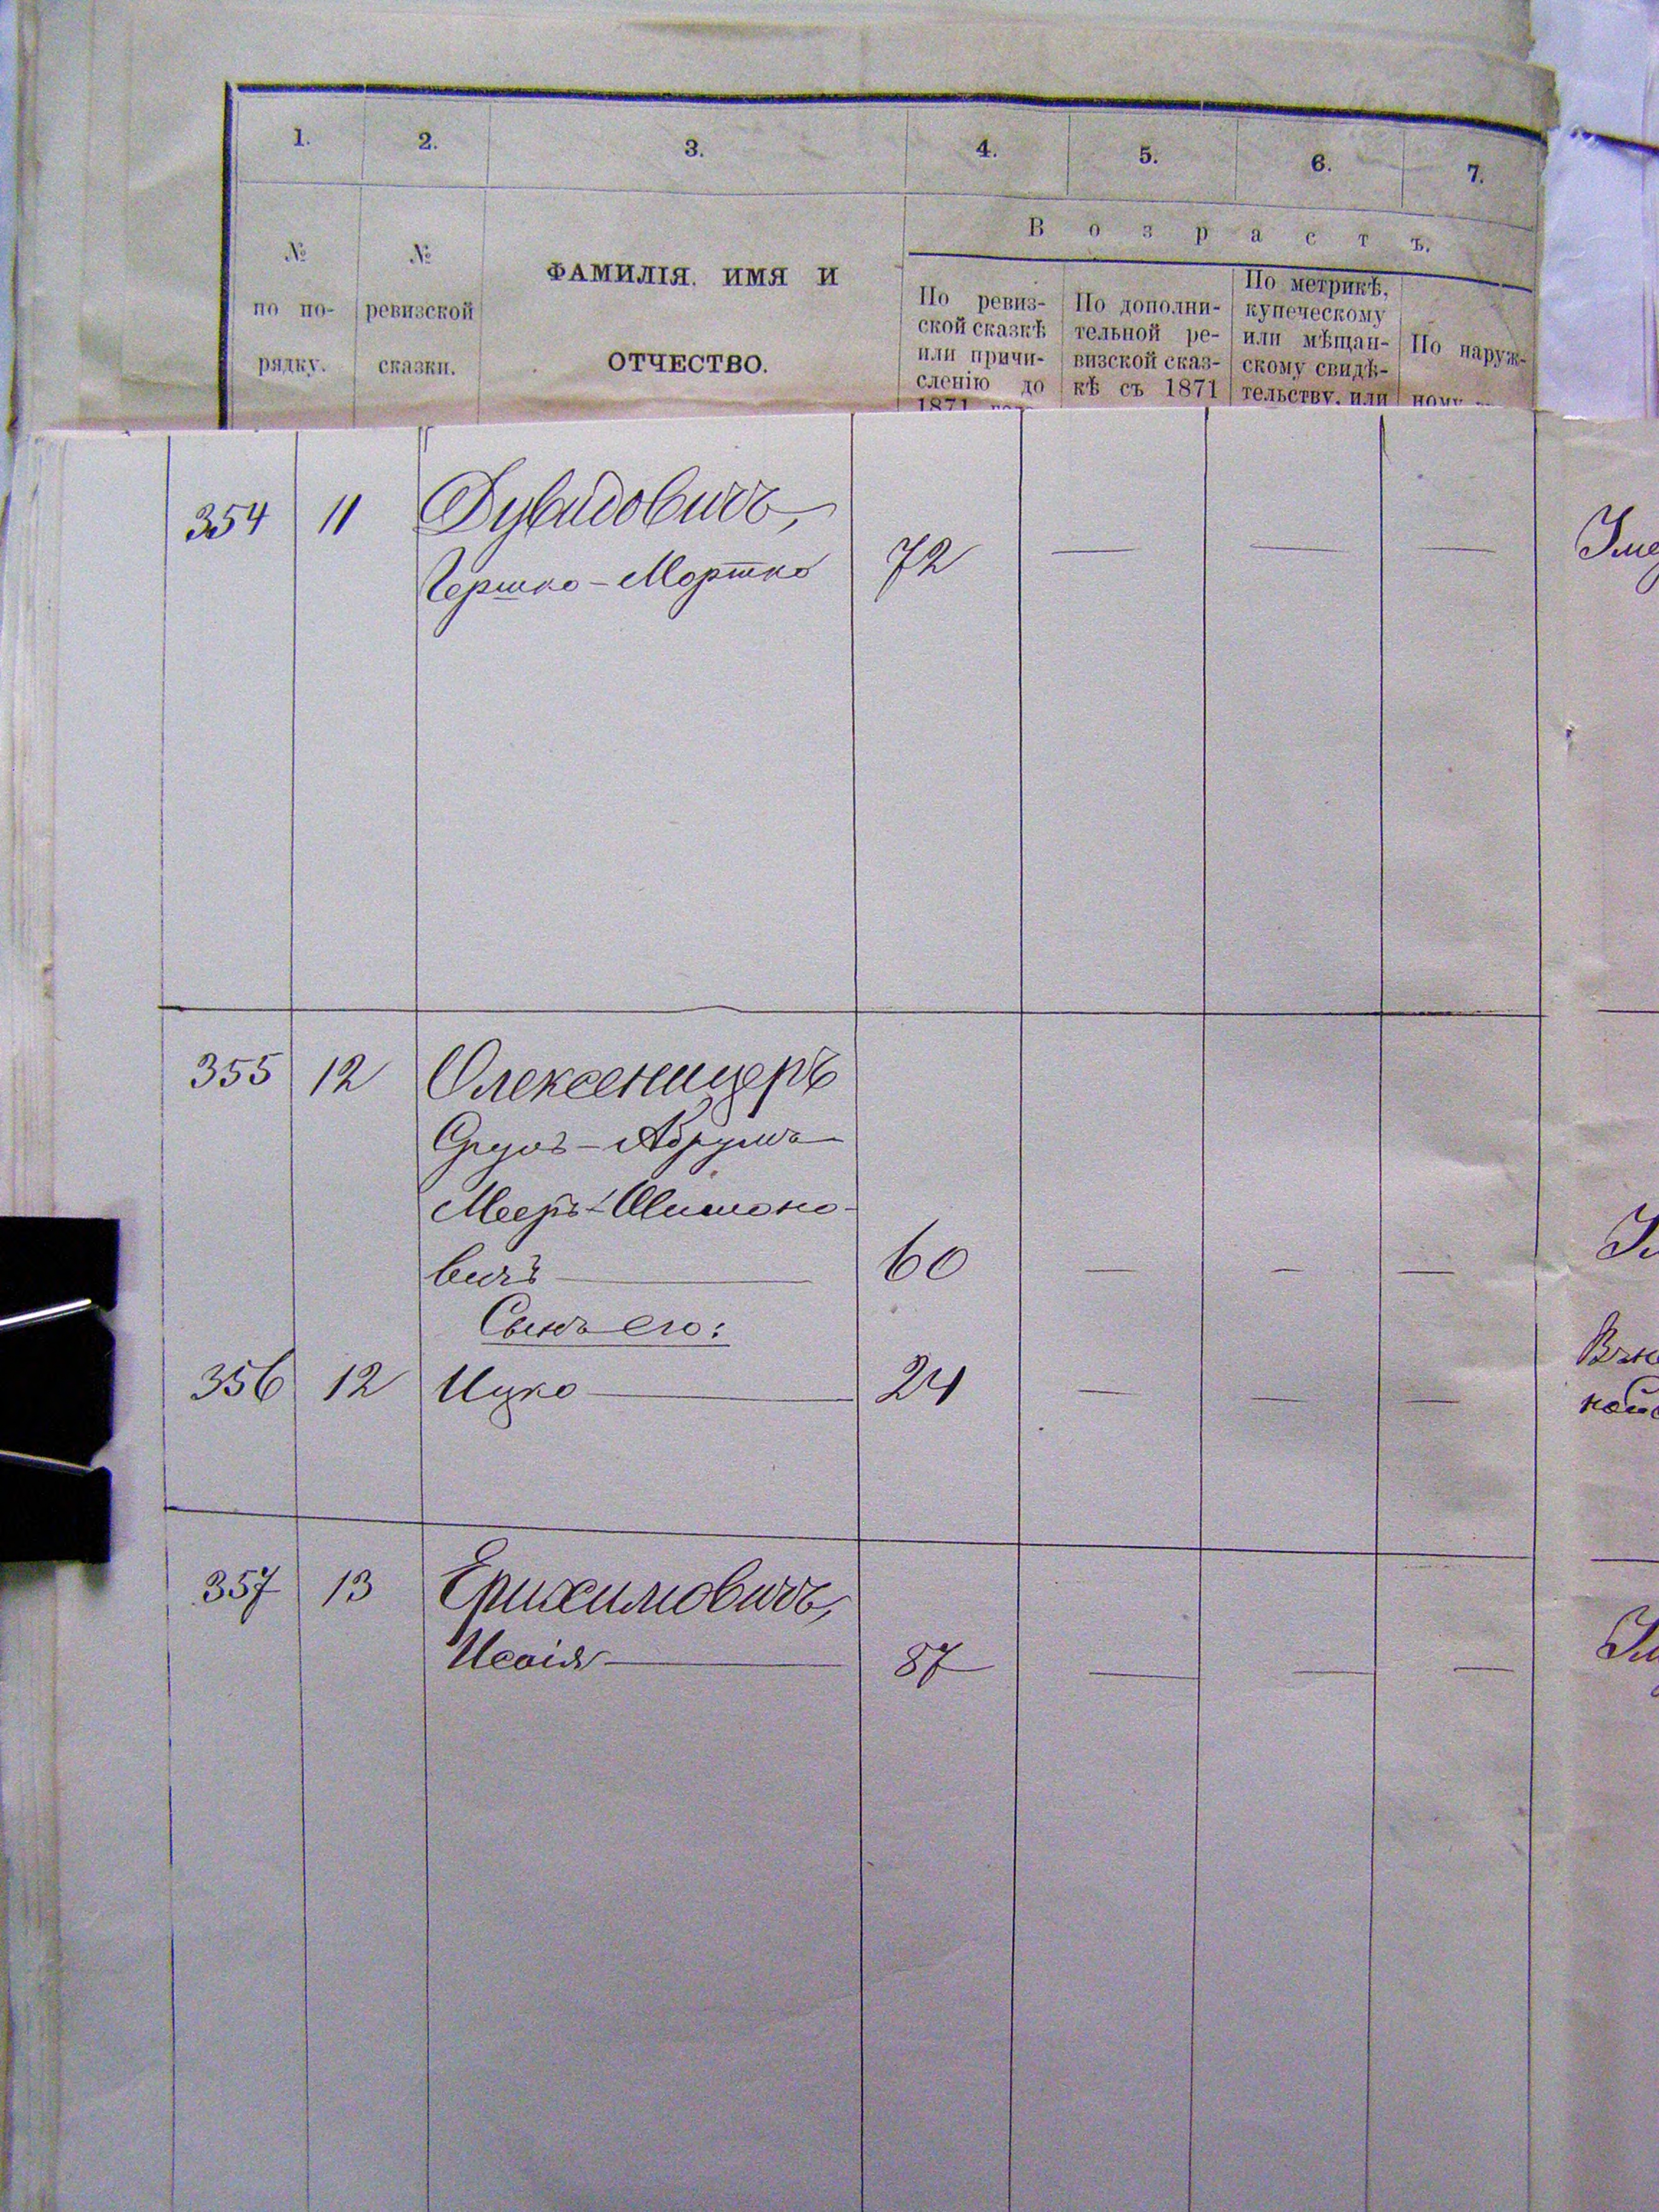 1. 2. 3. 4. 5. 6. 7.
В о з р а с т ъ.
№ по по- рядку.
№ ревизской сказки.
ФАМИЛІЯ, ИМЯ И
ОТЧЕСТВО.
По ревиз-
ской сказкѣ
или причи-
сленію до
1871
По дополни-
тельной ре-
визской сказ-
кѣ съ 1871
По метрикѣ,
купеческому
или мѣщан-
скому свидѣ-
тельству, или
По наруж-
ному
354 11 Дувидовичъ,
Гершко-Мортко 72 — — —
355 12 Олексеницеръ
Сруль-Абрумъ
Мееръ-Шимоно-
вичъ — 60 — — —
Сынъ его:
356 12 Ицко — 24 — — —
357 13 Ерихимовичъ,
Исаія — 87 — — —